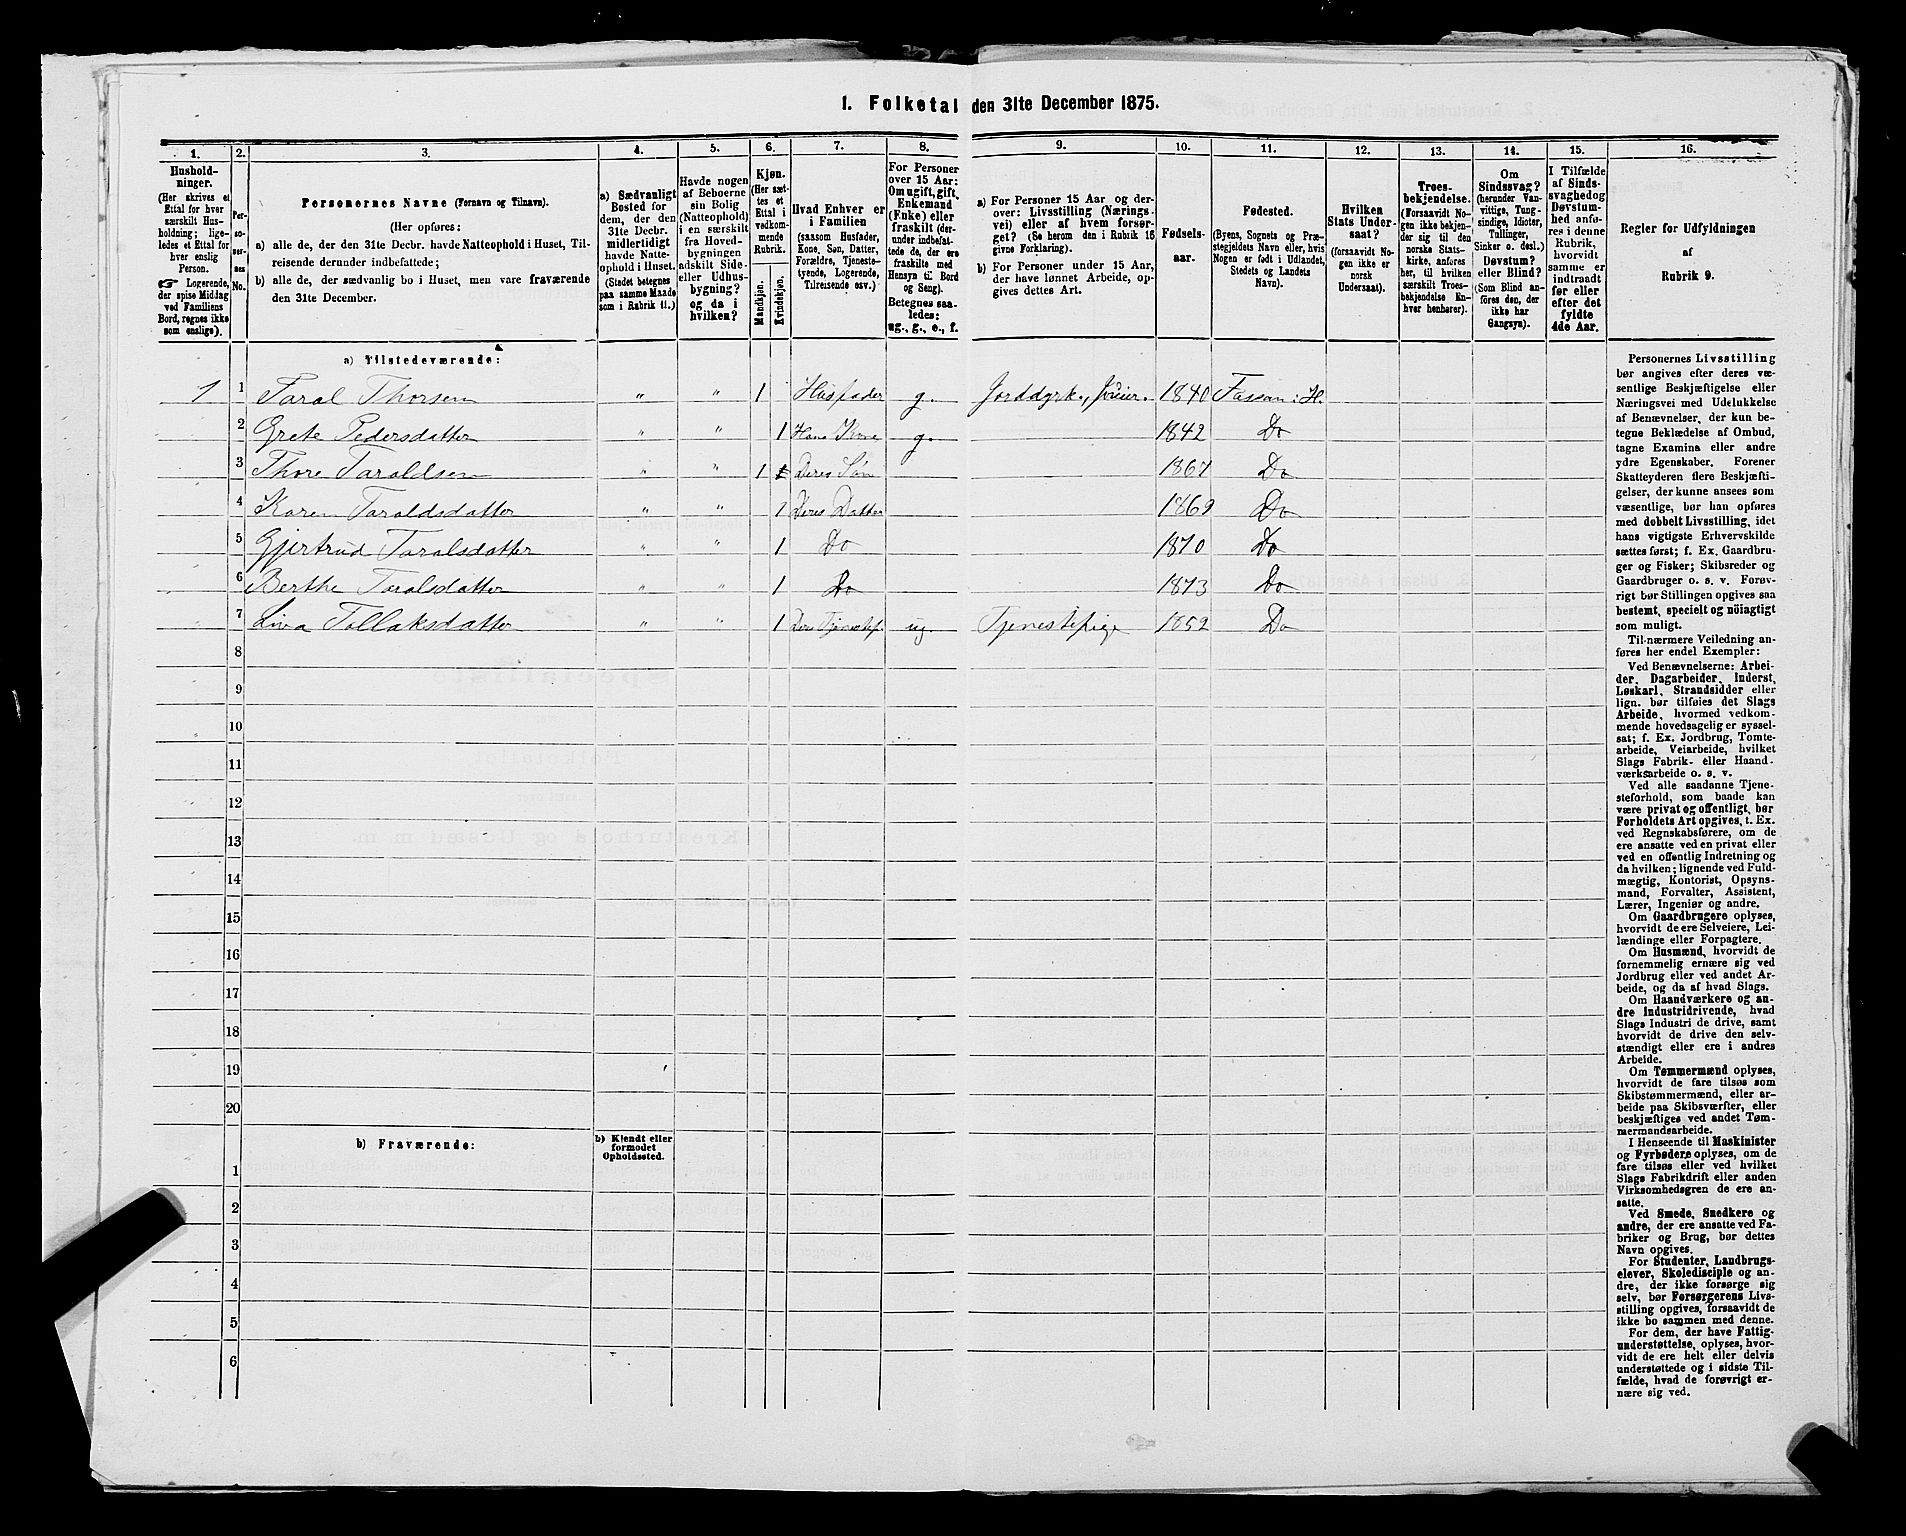 1. Folketal den 31te December 1875.
1.
2.
3.
4.
5.
6.
7.
8.
9.
10.
11.
12.
13.
14.
15.
16.
Hushold-
ninger.
(Her skrives et
Ettal for hver
særskilt Hus-
holdning; lige-
ledes et Ettal for
hver enslig
Person.
☞ Logerende,
der spise Middag
ved Familiens
Bord, regnes ikke
som enslige).
Per-
soner-
nes
No.
Personernes Navne (Fornavn og Tilnavn).
(Her opføres:
a) alle de, der den 31te Decbr. havde Natteophold i Huset, Til-
reisende derunder indbefattede;
b) alle de, der sædvanlig bo i Huset, men vare fraværende
den 31te December.
a) Sædvanligt
Bosted for
dem, der den
31te Decbr.
midlertidigt
havde Natte-
ophold i Huset.
(Stedet betegnes
paa samme Maade
som i Rubrik 11.)
Havde nogen
af Beboerne
sin Bolig
(Natteophold)
i en særskilt
fra Hoved-
bygningen
adskilt Side-
eller Udhus-
bygning?
og da i
hvilken?
Kjøn.
(Her sæt-
tes et
Ettal i
vedkom-
mende
Rubrik.
Mandkjøn.
Kvindekjøn.
Hvad Enhver er
i Familien
(saasom Husfader,
Kone, Søn, Datter,
Forældre, Tjeneste-
tyende, Logerende,
Tilreisende osv.)
For Personer
over 15 Aar:
Om ugift, gift,
Enkemand
(Enke) eller
fraskilt (der-
under indbefat-
tede de, der ere
fraskilte med
Hensyn til Bord
og Seng).
Betegnes saa-
ledes:
ug., g., e., f.
a) For Personer 15 Aar og der-
over: Livsstilling (Nærings-
vei) eller af hvem forsør-
get? (Se herom den i Rubrik 16
givne Forklaring).
b) For Personer under 15 Aar,
der have lønnet Arbeide, op-
gives dettes Art.
Fødsels-
aar.
Fødested.
(Byens, Sognets og Præ-
stegjeldets Navn eller, hvis
Nogen er født i Udlandet,
Stedets og Landets
Navn).
Hvilken
Stats Under-
saat?
(forsaavidt No-
gen ikke er
norsk
Undersaat).
Troes-
bekjendelse.
(Forsaavidt No-
gen ikke bekjen-
der sig til den
norske Stats-
kirke, anføres
her, til hvilken
særskilt Troes-
bekjendelse En-
hver henhører).
Om
Sindssvag?
(herunder Van-
vittige, Tung-
sindige, Idioter,
Tullinger,
Sinker o. desl.)
Døvstum?
eller Blind?
(Som Blind an-
føres den, der
ikke har
Gangsyn).
I Tilfælde
af Sinds-
svaghed og
Døvstum-
hed anfø-
res i denne
Rubrik,
hvorvidt
samme er
indtraadt
før eller
efter det
fyldte
4de Aar.
Regler for Udfyldningen
af
Rubrik 9.
a) Tilstedeværende:
1 1 Taral Thorsen " " 1 Husfader g. Jorddyrk., 1840 Fossan i H.
2 Grete Pedersdatter " " 1 Hans Kone g. 1842 Do
3 Thore Taraldsen " " 1 Deres Søn 1867 Do
4 Karen Taraldsdatter " " 1 Deres Datter 1869 Do
5 Gjertrud Taralsdatter " " 1 Do 1870 Do
6 Berthe Taralsdatter " " 1 Do 1873 Do
7 Liva Tollaksdatter " " 1 Tjenestep. ug. Tjenestepige 1852 Do
8
9
10
11
12
13
14
15
16
17
18
19
20
b) Fraværende:
b) Kjendt eller
formodet
Opholdssted.
1
2
3
4
5
6
Personernes Livsstilling
bør angives efter deres væ-
sentlige Beskjæftigelse eller
Næringsvei med Udelukkelse
af Benævnelser, der kun be-
tegne Beklædelse af Ombud,
tagne Examina eller andre
ydre Egenskaber. Forener
Skatteyderen flere Beskjæfti-
gelser, der kunne ansees som
væsentlige, bør han opføres
med dobbelt Livsstilling, idet
hans vigtigste Erhvervskilde
sættes først; f. Ex. Gaardbru-
ger og Fisker; Skibsreder og
Gaardbruger o. s. v. Forøv-
rigt bør Stillingen opgives saa
bestemt, specielt og nöiagtigt
som muligt.
Til nærmere Veiledning an-
føres her endel Exempler:
Ved Benævnelserne: Arbei-
der, Dagarbeider, Inderst,
Løskarl, Strandsidder eller
lign. bør tilføies det Slags
Arbeide, hvormed vedkom-
mende hovedsagelig er syssel-
sat; f. Ex. Jordbrug, Tomte-
arbeide, Veiarbeide, hvilket
Slags Fabrik- eller Haand-
værksarbeide o. s. v.
Ved alle saadanne Tjene-
steforhold, som baade kan
være privat og offentligt, bør
Forholdets Art opgives, t. Ex.
ved Regnskabsførere, om de
ere ansatte ved en privat eller
ved en offentlig Indretning og
da hvilken; lignende ved Fuld-
mægtig, Kontorist, Opsyns-
mand, Forvalter, Assistent,
Lærer, Ingeniør og andre.
Om Gaardbrugere oplyses,
hvorvidt de ere Selveiere, Lei-
lændinge eller Forpagtere.
Om Husmænd, hvorvidt de
fornemmelig ernære sig ved
Jordbrug eller ved andet Ar-
beide, og da af hvad Slags.
Om Haandværkere og an-
dre Industridrivende, hvad
Slags Industri de drive, samt
hvorvidt de drive den selv-
stændigt eller ere i andres
Arbeide.
Om Tømmermænd oplyses,
hvorvidt de fare tilsøs som
Skibstømmermænd, eller ar-
beide paa Skibsværfter, eller
beskjæftiges ved andet Tøm-
mermandsarbeide.
I Henseende til Maskinister
og Fyrbødere oplyses, om de
fare tilsøs eller ved hvilket
Slags Fabrikdrift eller anden
Virksomhedsgren de ere an-
satte.
Ved Smede, Snedkere og
andre, der ere ansatte ved Fa-
briker og Brug, bør dettes
Navn opgives.
For Studenter, Landbrugs-
elever, Skoledisciple og an-
dre, der ikke forsørge sig
selv, bør Forsørgerens Livs-
stilling opgives, forsaavidt de
ikke bo sammen med denne.
For dem, der have Fattig-
understøttelse, oplyses, hvor-
vidt de ere helt eller delvis
understøttede og i sidste Til-
fælde, hvad de forøvrigt er-
nære sig ved.